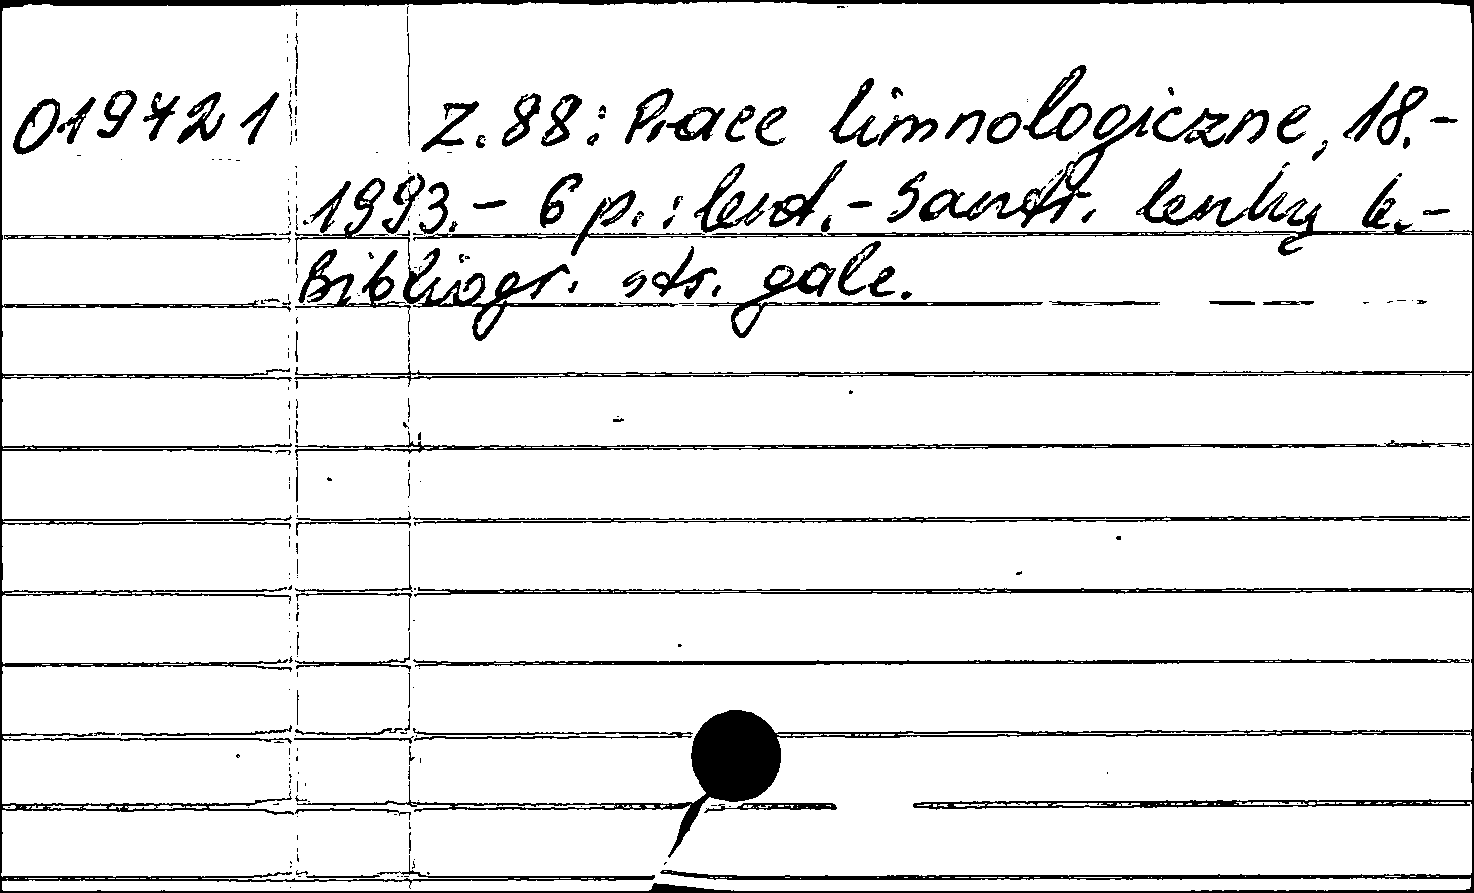 019721 Z.88: Prace limnologiczne, 18.-
1993.- 6 p.: lend.- Santr. lenkų k.-
Bibliogr. str. gale.